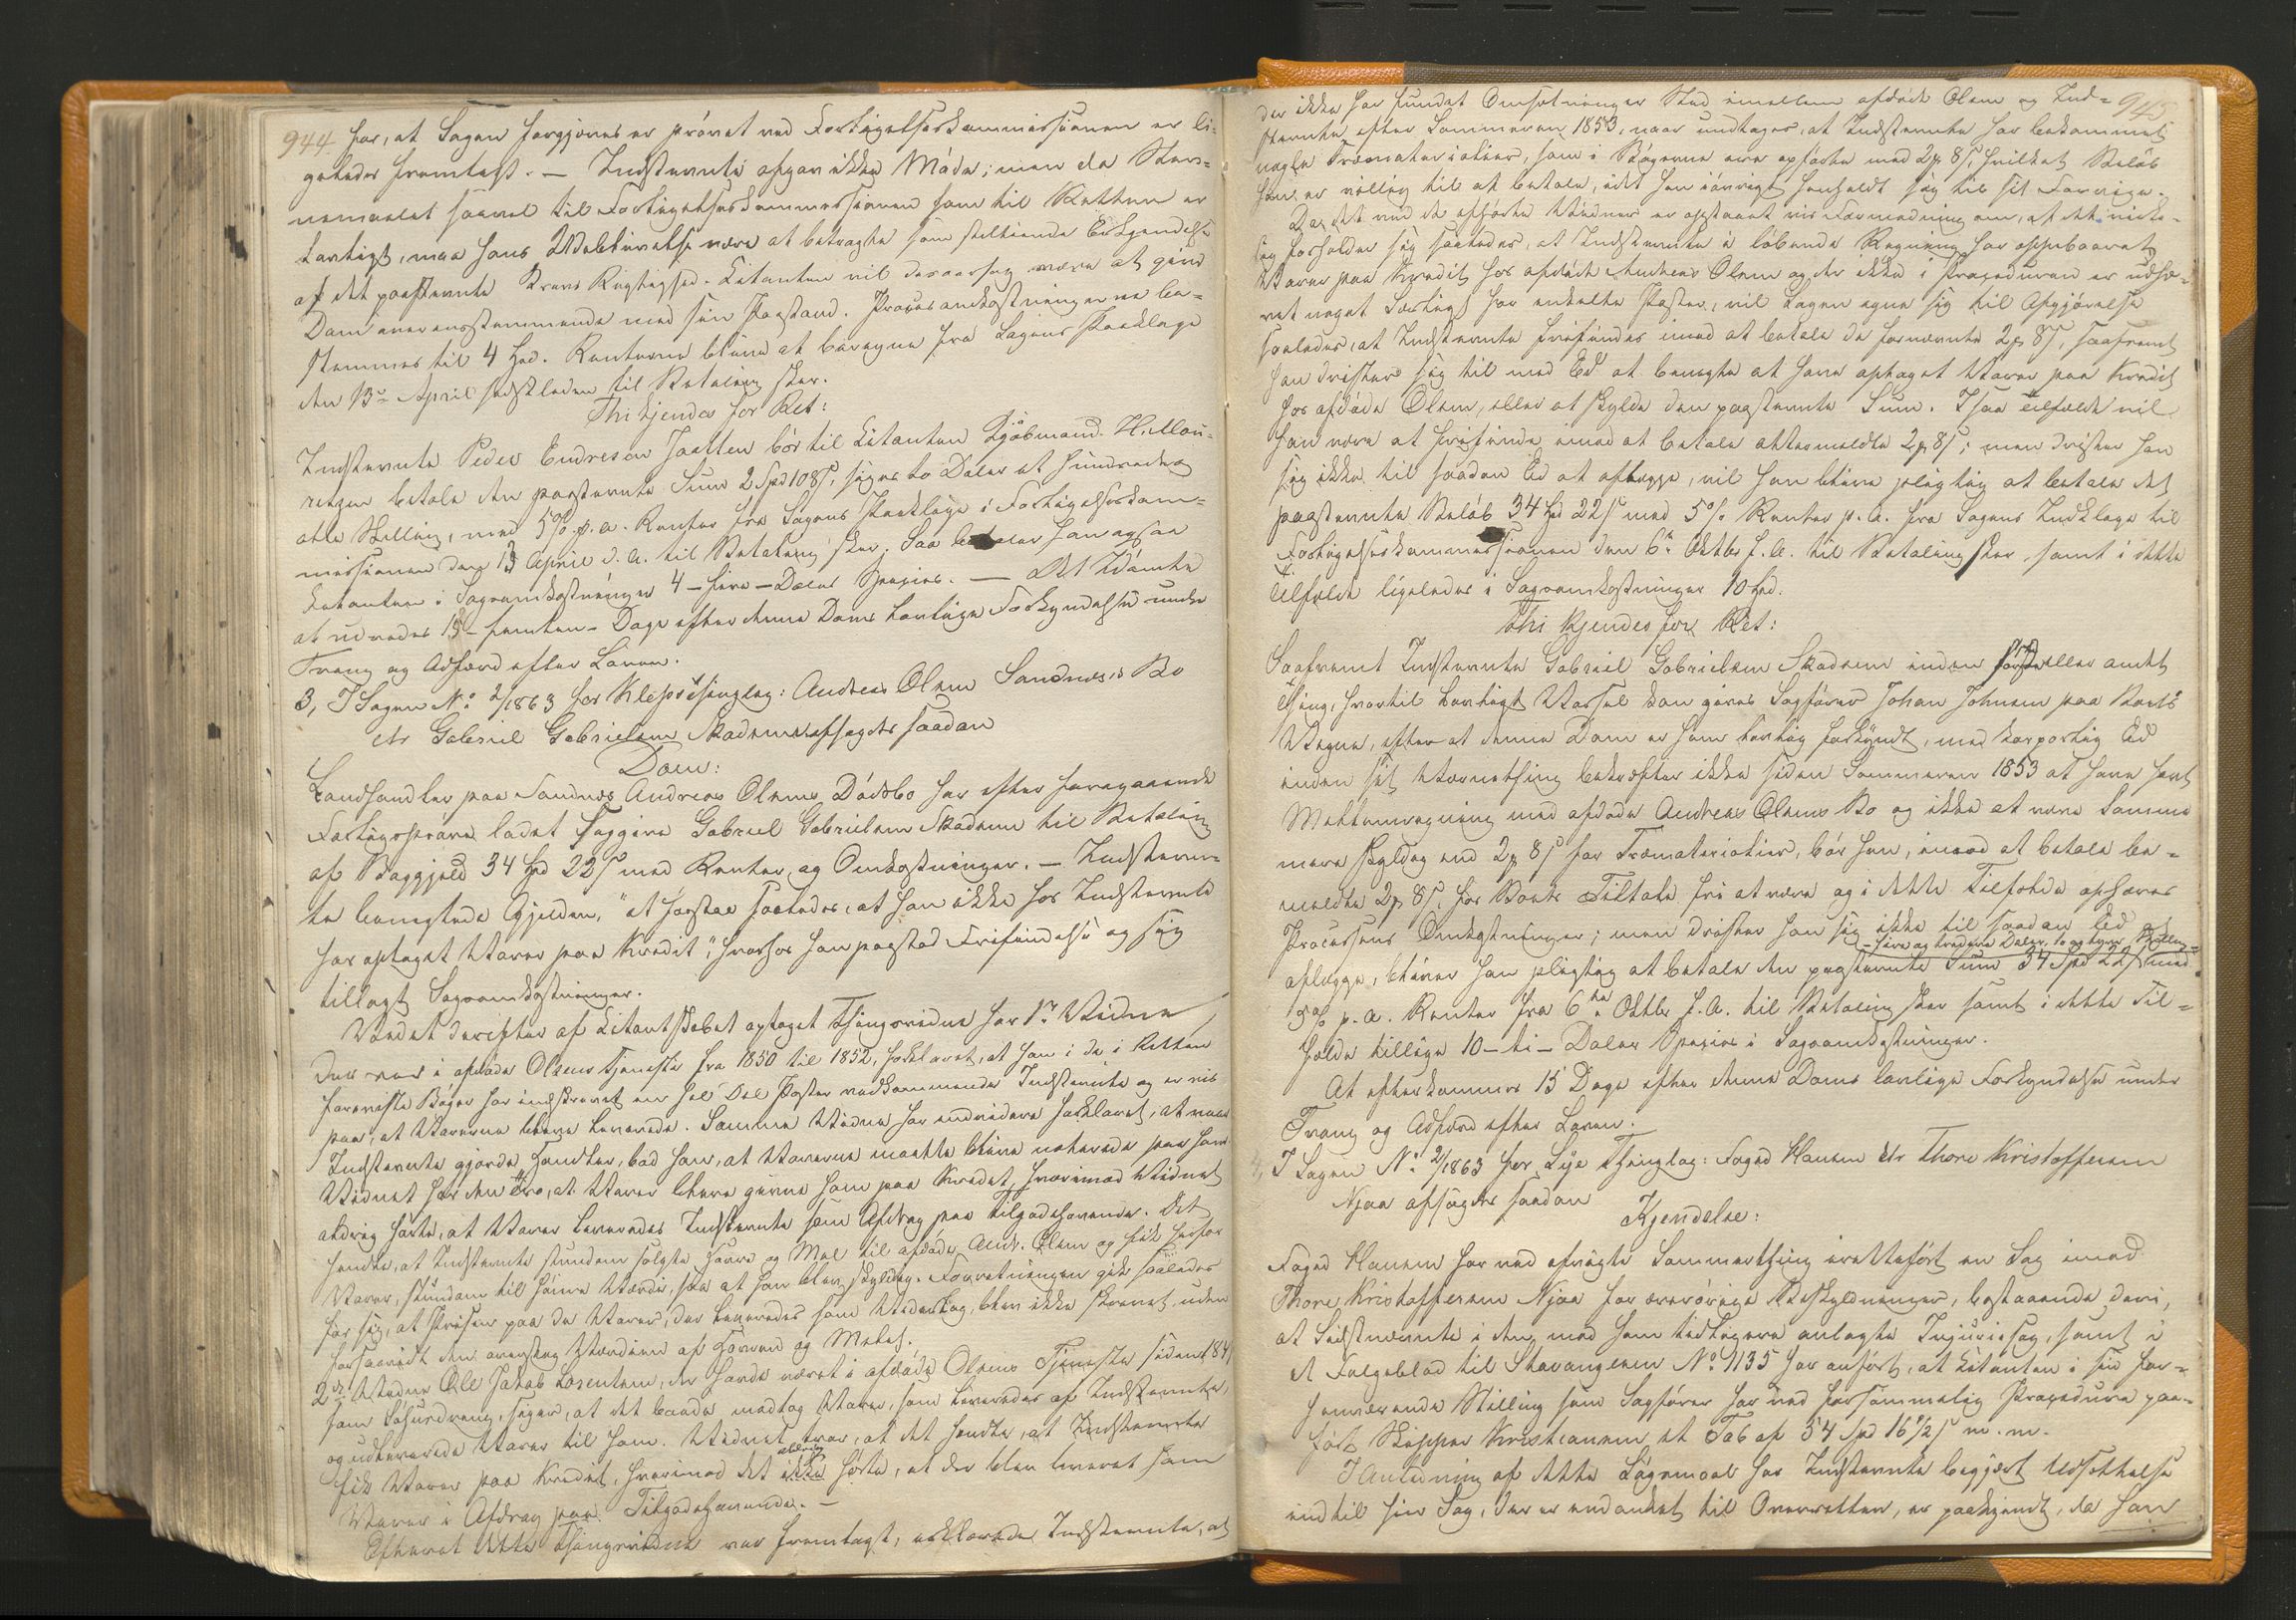 944
for, at Sagen forgjæves er prøvet ved Forligelseskommissionen er li-
geledes fremlagt. — Indstevnte afgav ikke Møde; men da Stev-
nemaalet saavel til Forligelseskommissionen som til Retten er
lovligt, maa hans Udeblivelse være at betragte som stiltiende Erkjendelse
af det paastevnte Kravs Rigtighed. Citanten vil deraarsag være at give
Dom overensstemmende med sin Paastand. Procesomkostningerne be-
stemmes til 4 Spd. Renterne blive at beregne fra Sagens Paaklage
den 13de April sidstleden til Betaling sker.
Thi kjendes for Ret:
Indstevnte Peder Endresen Jaatten bör til Citanten Kjöbmand H. Mou-
ritzen betale den paastevnte Sum 2 Spd 108 s, siger to Daler et hundrede og
otte Skilling, med 5% p. a. Renter fra Sagens Paaklage i Forligelseskom-
missionen den 13 April d. A. til Betaling sker. Saa betaler han ogsaa
Citanten i Sagsomkostninger 4 - fire - Daler Species. — Det Idömte
at udredes 15 - femten - Dage efter denne Doms lovlige Forkyndelse under
Tvang og Adfærd efter Loven.
3, I Sagen No 2/1863 for Klep Thinglag: Andreas Olsen Sandnes's Bo
ctr Gabriel Gabrielsen Skadsem afsagdes saadan
Dom:
Landhandler paa Sandnes Andreas Olsens Dödsbo har efter foregaaende
Forligspröve ladet sagsöge Gabriel Gabrielsen Skadsem til Betaling
af Boggjeld 34 Spd 22 s med Renter og Omkostninger. — Indstevn-
te benegtede Gjelden, "at forstaa saaledes, at han ikke hos Indstevnte
har optaget Varer paa Kredit", hvorfor han paastod Frifindelse og sig
tillagt Sagsomkostninger.
Ved et derefter af Citantskabet optaget Thingsvidne har 1ste Vidne,
der var i afdöde Olsens Tjeneste fra 1850 til 1852, forklaret, at han i de i Retten
foreviste Böger har indskrevet en hel Del Poster vedkommende Indstevnte og er vis
paa, at Varerne bleve leverede. Samme Vidne har endvidere forklaret, at naar
Indstevnte gjorde Handler, bad han, at Varerne maatte blive noterede paa ham
Vidnet har den Tro, at Varer bleve givne ham paa Kredit, hvorimod Vidnet
aldrig hörte, at Varer leveredes Indstevnte som Afdrag paa Tilgodehavende. Det
hendte, at Indstevnte stundom solgte Korn og Mel til afdöde Andr. Olsen og fik herfor
Varer, stundom til större Værdi, saa at han blev skyldig. Forretningen gik saaledes
for sig, at Prisen paa de Varer, der leveredes som Vederlag, blev ikke skrevet uden
forsaavidt den oversteg Værdien af Kornet og Melet.
2det Vidne Ole Jakob Lorentsen, der havde været i afdöde Olsens Tjeneste siden 184
som Söhusdreng, siger, at det baade modtog Varer, som leveredes af Indstevnte,
og udleverede Varer til ham. Vidnet tror, at det hendte, at Indstevnte
fik Varer paa Kredit, hvorimod det aldrig hörte, at der blev leveret ham
Varer i Afdrag paa Tilgodehavende. —
Efterat dette Thingsvidne var fremlagt, erklærede Indstevnte, at
945
der ikke har fundet Omsætninger Sted imellem afdöde Olsen og Ind-
stevnte efter Sommeren 1853, naar undtages, at Indstevnte har bekommet
nogle Træmaterialier, som i Bögerne ere opförte med 2 s 8 s, hvilket Belöb
han er villig til at betale, idet han iövrigt henholdt sig til sit Forrige.
Da det ved de afhörte Vidner er opstaaet vis Formodning om, at det virke-
lig forholder sig saaledes, at Indstevnte i löbende Regning har oppebaaret
Varer paa Kredit hos afdöde Andreas Olsen og der ikke i Proceduren er udhæ-
vet noget Særligt for enkelte Poster, vil Sagen egne sig til Afgjörelse
saaledes, at Indstevnte frifindes imod at betale de fornævnte 2 s 8 s, saafremt
han drister sig til med Ed at benegte at have optaget Varer paa Kredit
hos afdöde Olsen, eller at skylde den paastevnte Sum. I saa Tilfælde vil
han være at frifinde imod at betale oftemeldte 2 s 8 s; men drister han
sig ikke til saadan Ed at aflægge, vil han blive pligtig at betale det
paastevnte Belöb 34 Spd 22 s med 5% Renter p. a. fra Sagens Indklage til
Forligelseskommissionen den 6te Oktbr f. A. til Betaling sker, samt i dette
Tilfælde ligeledes i Sagsomkostninger 10 Spd.
Thi kjendes for Ret:
Saafremt Indstevnte Gabriel Gabrielsen Skadsem inden förste eller andet
Thing, hvortil lovligt Varsel kan gives Sagförer Johan Johnsen paa Boets
Vegne, efter at denne Dom er ham lovlig forkyndt, med korporlig Ed
inden sit Værnething bekræfter ikke siden Sommeren 1853 at have havt
Mellemregning med afdöde Andreas Olsens Bo og ikke at være Samme
mere skyldig end 2 s 8 s for Træmaterialier, bör han, imod at betale be-
meldte 2 s 8 s, for Boets Tiltale fri at være og i dette Tilfælde ophæves
Processens Omkostninger; men drister han sig ikke til saadan Ed at
- fire og tredive Daler, to og tyve Skilling -
aflægge, bliver han pligtig at betale den paastevnte Sum 34 Spd 22 s med
5% p. a. Renter fra 6te Oktbr f. A. til Betaling sker samt i dette Til-
fælde tillige 10 - ti - Daler Species i Sagsomkostninger.
At efterkommes 15 Dage efter denne Doms lovlige Forkyndelse under
Tvang og Adfærd efter Loven.
4, I Sagen No 2/1863 for Lye Thinglag: Foged Hansen ctr Thore Kristoffersen
Njaa afsagdes saadan
Kjendelse:
Foged Hansen har ved afvigte Sommerthing iretteført en Sag imod
Thore Kristoffersen Njaa for ærerörige Beskyldninger, bestaaende deri,
at Sidstnævnte i den mod ham tidligere anlagte Injuriesag, samt i
et Fölgeblad til Stavangeren No 1135 har anfört, at Citanten i sin for-
henværende Stilling som Sagförer har ved forsömmelig Procedure paa-
fört Skipper Kristiansen et Tab af 54 Spd 16 1/2 s m. m.
I Anledning af dette Sögsmaal har Indstevnte begjært Udsættelse
indtil hin Sag, der er indanket til Overretten, er paakjendt, da han